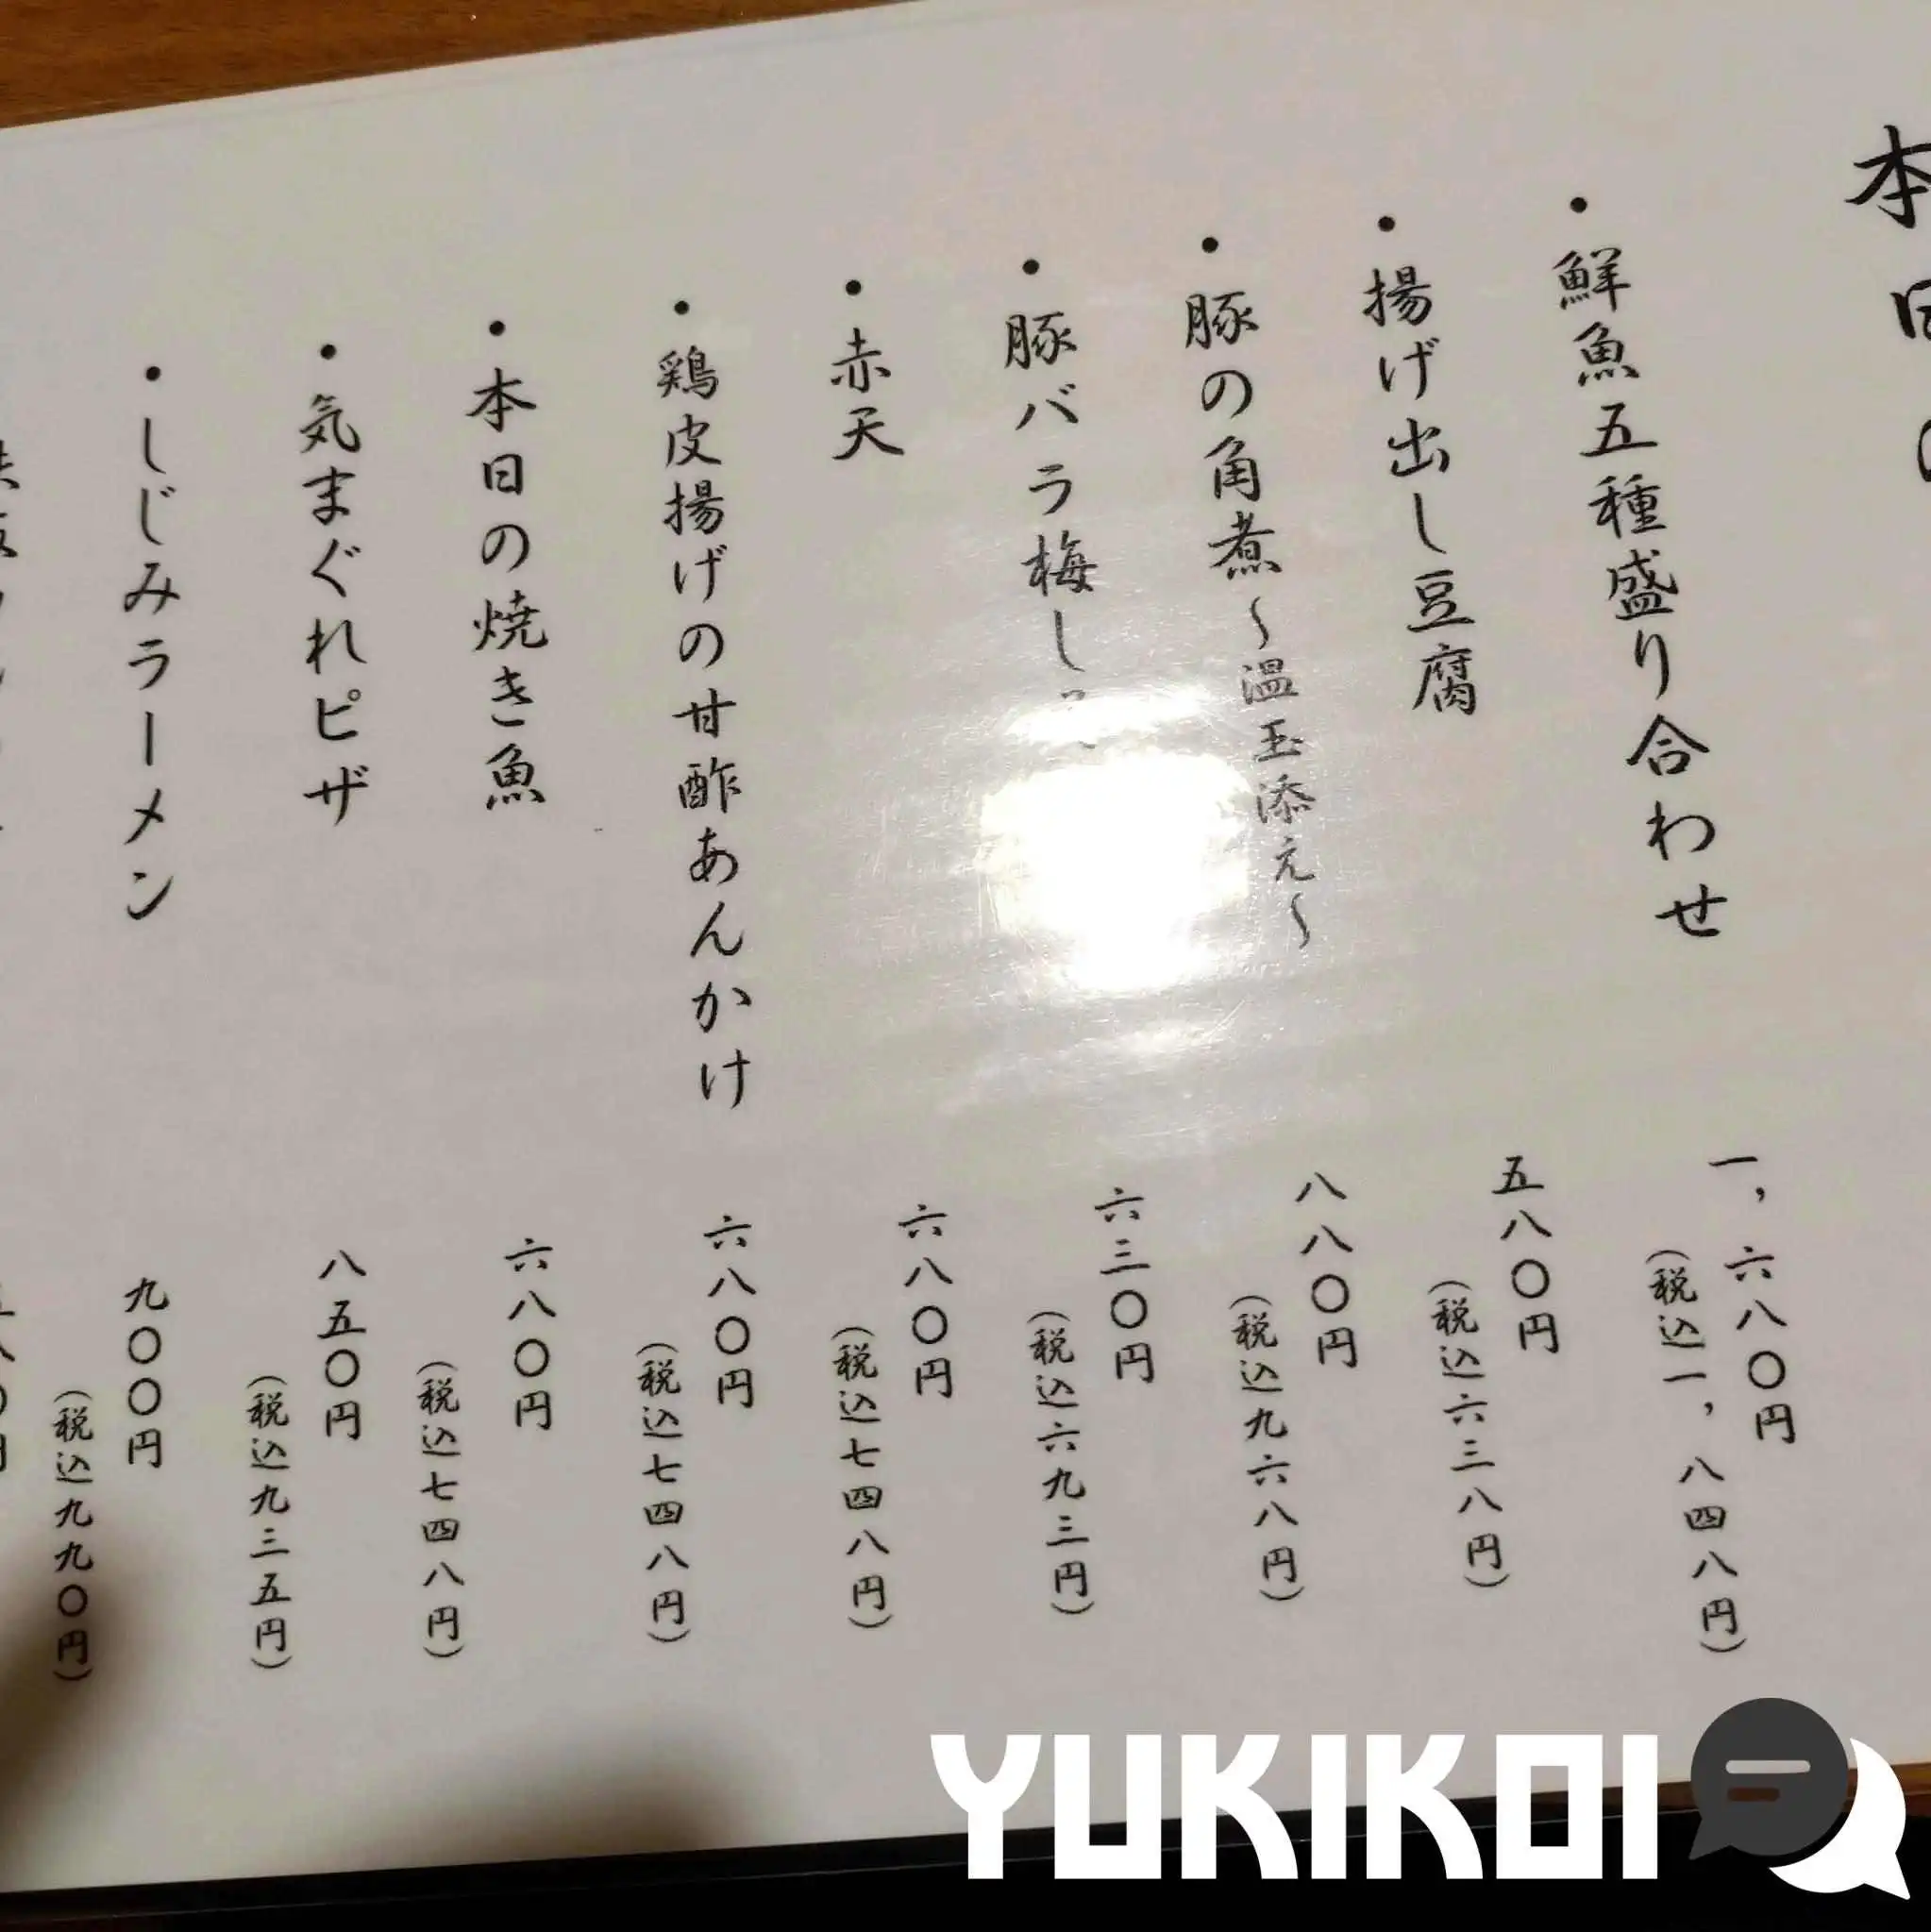 本日の
・鮮魚五種盛り合わせ
一，六八〇円
（税込一，八四八円）
・揚げ出し豆腐
五八〇円
（税込六三八円）
・豚の角煮～温玉添え～
八八〇円
（税込九六八円）
・豚バラ梅し
六三〇円
（税込六九三円）
・赤天
六八〇円
（税込七四八円）
・鶏皮揚げの甘酢あんかけ
六八〇円
（税込七四八円）
・本日の焼き魚
六八〇円
（税込七四八円）
・気まぐれピザ
八五〇円
（税込九三五円）
・しじみラーメン
九〇〇円
（税込九九〇円）
YUKIKOI